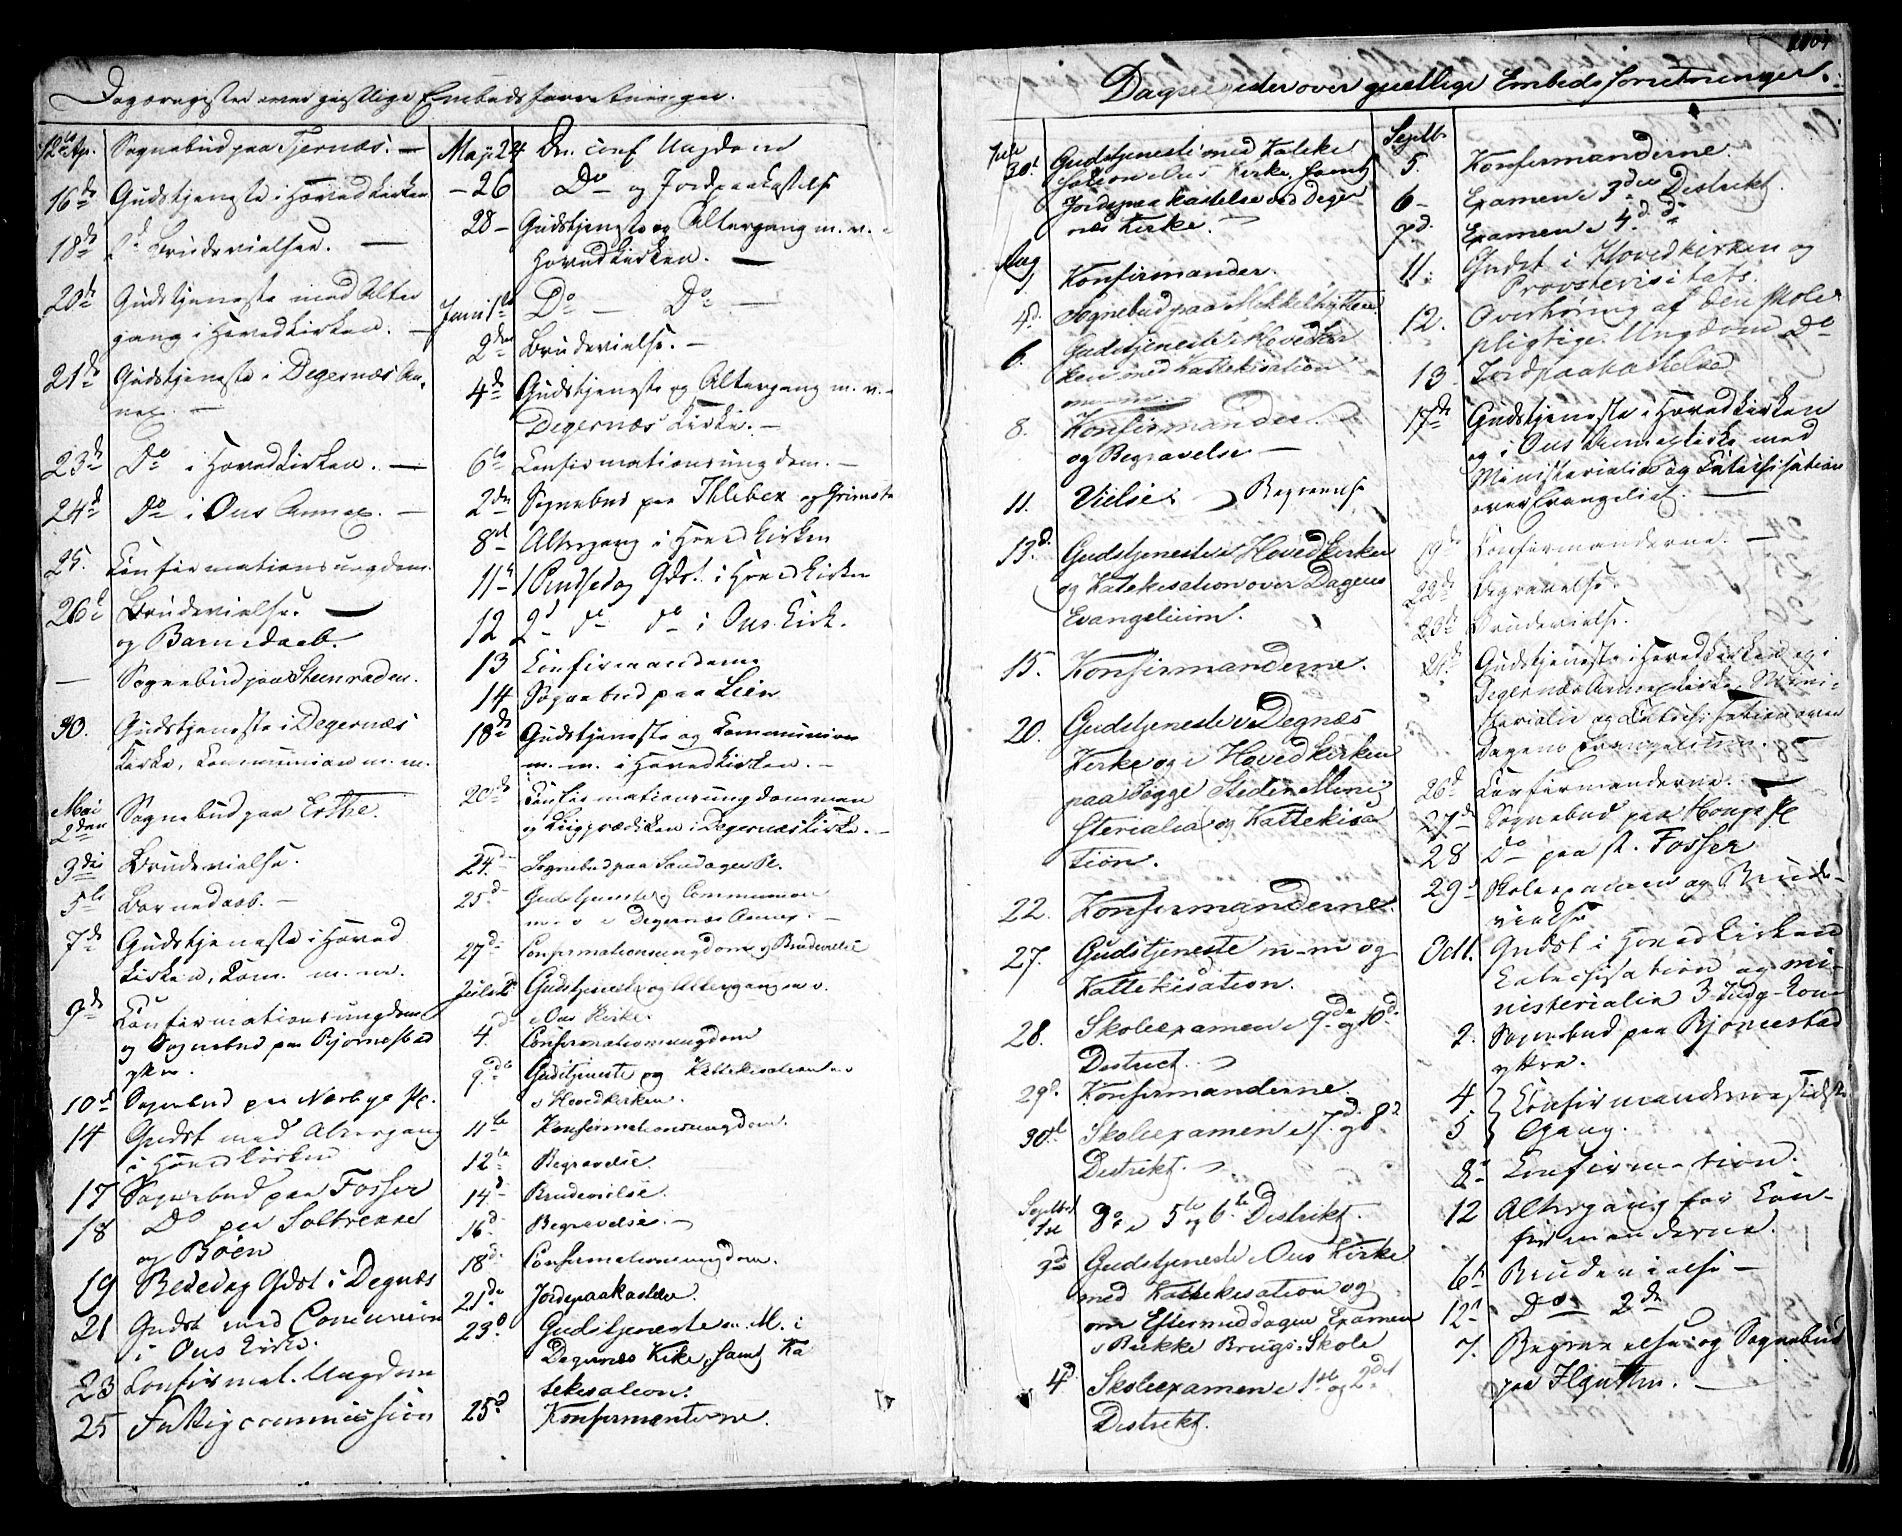 Dagsregister over geistlige Embedsforretninger.
12te Ap. Sognebud paa Tjernæs. —
16de Gudstjeneste i Hovedkirken
18de Brudevielser. —
20de Gudstjeneste med Alter
gang i Hovedkirken. —
21de Gudstjeneste i Degernæs An-
nex. —
23de Do i Hovedkirken. —
24d Do i Ous Annex. —
25. Confirmationsungdom.
26de Brudevielse. —
og Barnedaab.
— Sognebud paa Steenraden.
30. Gudstjeneste i Degernæs
Kirke, Communion m. m.
Mai
2den Sognebud paa Erthe.
3die Brudevielse.
5te Barnedaab. —
7de Gudstjeneste i Hoved
kirken, Kom. m. m.
9de Confirmationsungdom
og Sognebud paa Bjørnestad
10de Sognebud paa Nærbye Pl.
14 Gudst med Altergang
i Hovedkirken
17 Sognebud paa Fosser
18 Do paa Solbrekke
og Bøen
19 Bededag Gdst i Degnæs
21 Gudst med Communion
i Ous Kirke.
23 Confirmat. Ungdom
25 Fattigcommission
Maji 24 Do. conf Ungdom
— 26 Do og Jordpaakastelse
28 — Gudstjeneste og Altergang m. v. i
Hovedkirken. —
Juni 1ste Do — Do —
2den Brudevielse. —
4de Gudstjeneste og Altergang m. v. i
Degernæs Kirke. —
6te Confirmationsungdom. —
2den Sognebud paa Klebek og Grimsta
8de Altergang i Hovedkirken
11te 1 Pintsedag Gdst. i Hovedkirken
12 2d do do i Ous Kirk.
13 Confirmanderne
14 Sognebud paa Lien
18de Gudstjeneste og Communion
m. m. i Hovedkirken. —
20de Confirmationsungdommen
og Liigprædiken i Degernæs Kirke. —
24d Sognebud paa Sandager Pl.
25d Gudstjeneste og Communion
m. v. i Degernæs Annex. —
27d Confirmationsungdom og Brudevielse
Juli 2 Gudstjeneste og Altergang m. v.
i Ous Kirke.
4d Confirmationsungdom
9de Gudstjeneste og Kattekisation m. v
i Hovedkirken.
11te Konfirmationsungdom.
12te Begravelse.
14d Brudevielse.
16d Begravelse. —
18d Confirmationsungdom.
21de Jordspaakastelse.
23d Gudstjeneste m. M. i
Degernæs Kirke, samt Ka
tekisation.
25d Konfirmanterne.
Dagsregister over geistlige Embedsforretninger.
Juli
30t Gudstjeneste med Kateke
sation i Ous Kirke, samt
Jordspaakastelse ved Deger
næs Kirke.
Aug
1 Konfirmander.
4d Sognebud paa Mikkelhytten
6. Gudstjeneste i Hovedkir
ken med Kattekisation
8. Konfirmander.
og Begravelse —
11. Vielse. Begravelse
13d. Gudstjeneste i Hovedkirken
og Katekisation over Dagens
Evangelium.
15. Konfirmanderne.
20. Gudstjeneste i Degnæs
Kirke og i Hovedkirken
paa begge Steder Mini
sterialia og Kattekisa
tion.
22. Konfirmanderne.
27. Gudstjeneste m-m og
Kattekisation.
28. Skoleexamen i 9de og 10d
District.
29d. Konfirmanderne
30te Skoleexamen i 7d og 8d
Distrikt.
Septbr
1ste Do i 5te og 6te Distrikt.
3d Gudstjeneste i Ous Kirke
med Kattekisation og
om Eftermiddagen Examen
i Brække Brugs Skole
4d Skoleexamen i 1ste og 2det
Distrikt.
Septb
5. Konfirmanderne.
6 — Examen i 3die Distrikt.
7d. Examen i 4d do
11. Gudst i Hovedkirken og
Provstevisitats.
12. Overhøring af den skole
pligtige Ungdom Do
13 Jordpaakastelse
17de Gudstjeneste i Hovedkirken
og i Ous Annexkirke med
Ministerialia og Katechisation
over Evangeliet. —
19de Confirmanderne. —
22de Begravelse.
23de Brudevielse.
24de Gudstjeneste i Hovedkirken og i
Degernæs Annexkirke, Mini-
sterialia og Katechisation over
Dagens Evangelium.
26d Confirmanderne. —
27de Sognebud paa Houge Pl
28 Do paa st. Fosser
29d Skoleexamen og Brude-
vielse
Oct 1. Gudst i Hovedkirken
Catechisation og mi-
nisterialia
2. Sognebud paa Bjørnestad
yttre.
4 Confirmanderne sidste
5 Gang.
8de Confirmation.
12 Altergang for Con-
firmanderne.
6te Brudevielse —
12te Do 2de
7. Begravelse og Sognebud
paa